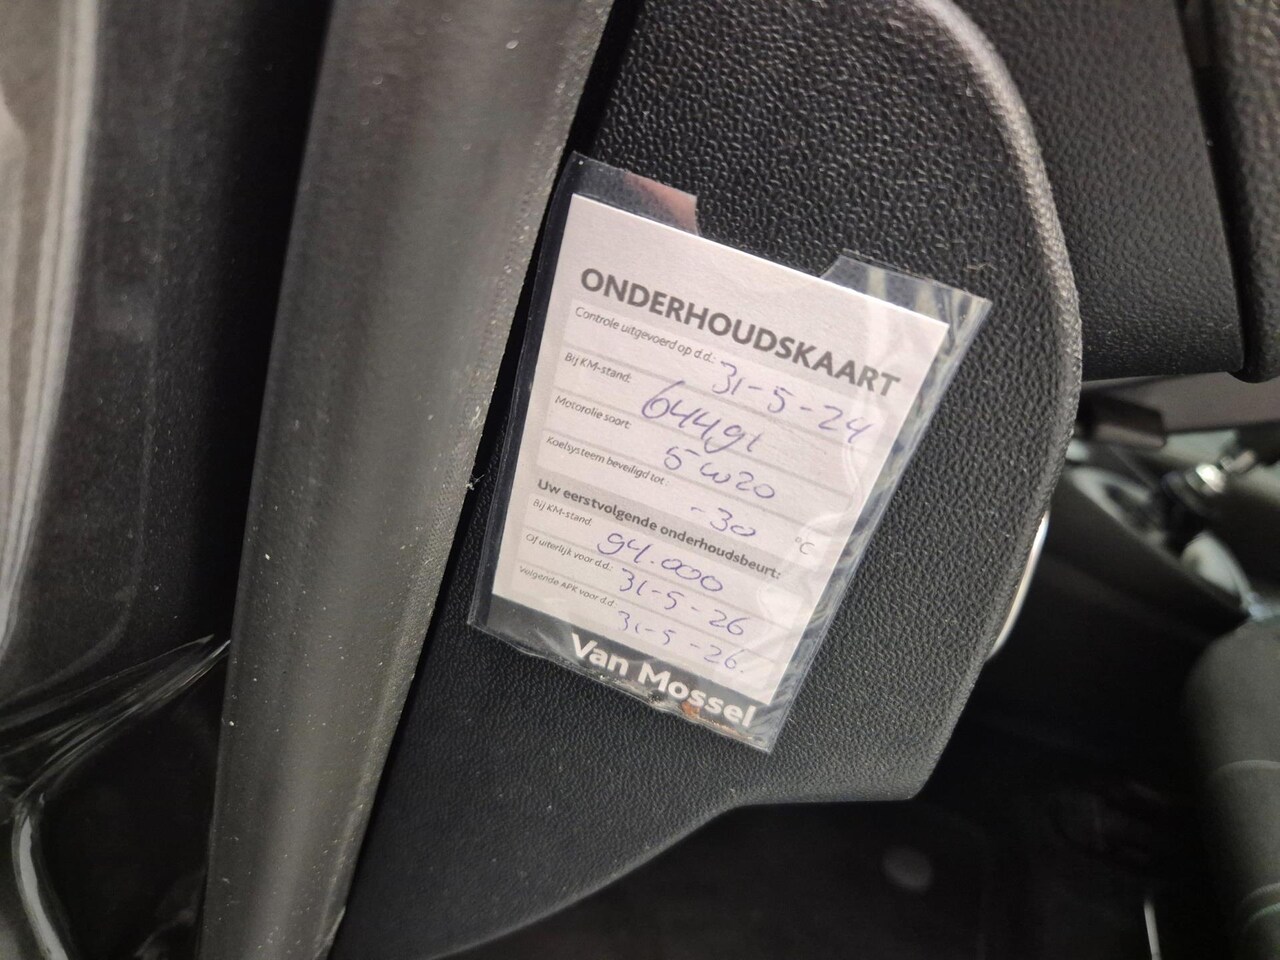 ONDERHOUDSKAART
Controle uitgevoerd op d.d.: 31-5-24
Bij KM-stand: 64491
Motorolie soort: 5w20
Koelsysteem beveiligd tot: -30 °C
Uw eerstvolgende onderhoudsbeurt:
Bij KM-stand: 94.000
Of uiterlijk voor d.d.: 31-5-26
Volgende APK voor d.d.: 31-5-26.
Van Mossel